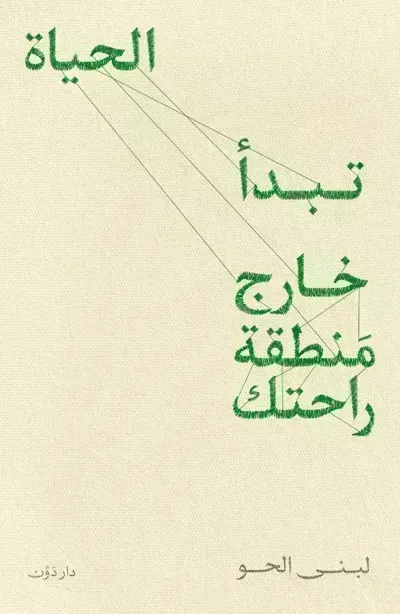 الحياة
تبدأ
خارج
مَنطقة
راحتك
لبنى الحو
دار دَوِّن